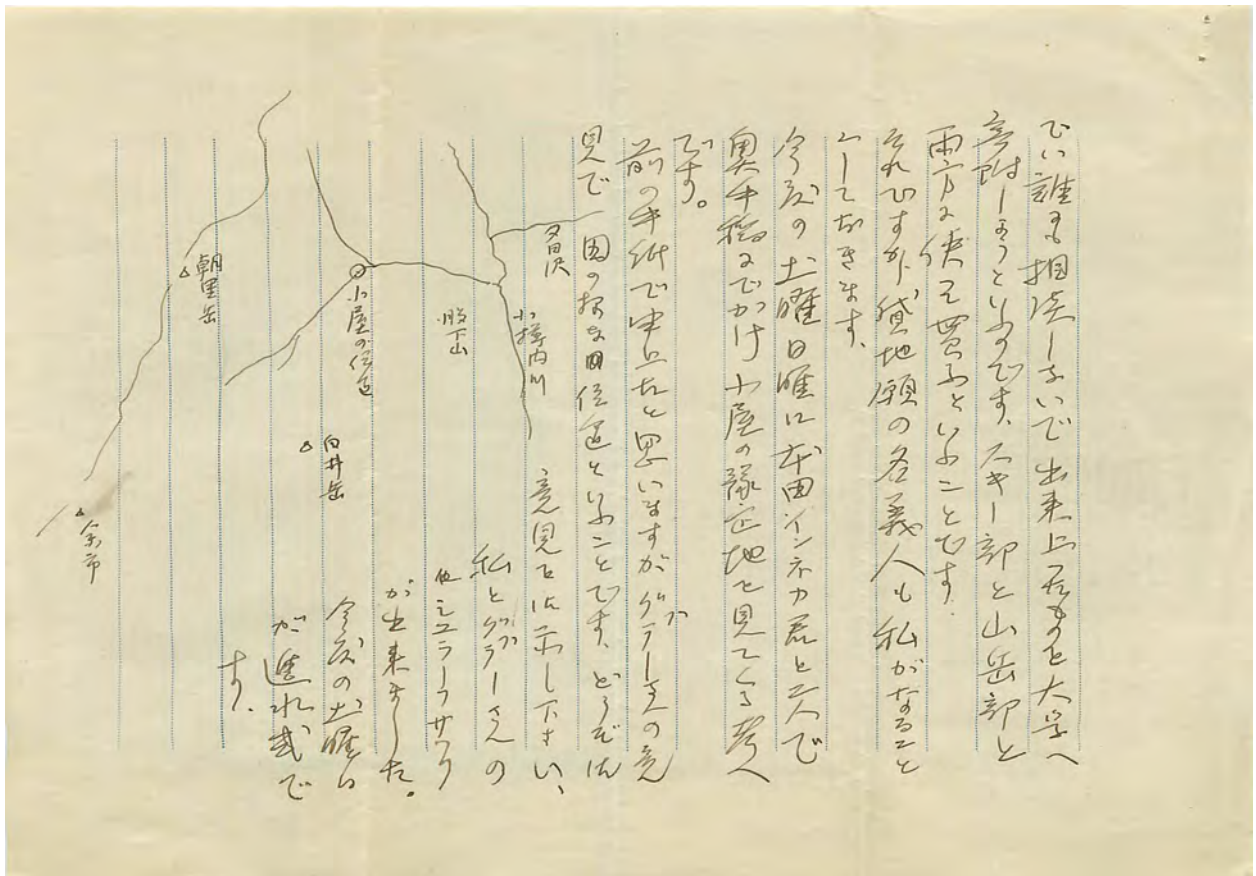 でい誰にも相談しないで出来上ったものを大学へ
寄附しようといふのです、スキー部と山岳部と
両方に使って貰ふといふことです.
それですから貸地願の名義人も私がなること
にしておきます.
今度の土曜日曜に本田インネカ君と三人で
奥手稲までかけ小屋の豫定地を見てくる考へ
です。
前の手紙で申上たと思いますがグブラーさんの意
見で 図の様な位置といふことです、どうぞ御
意見を御示し下さい、
私とグブラーさんの
が出来ました。
今度の土曜日
が進水式で
す.
夕日沢
小樽内川
股下山
小屋の位置
朝里岳
白井岳
余市